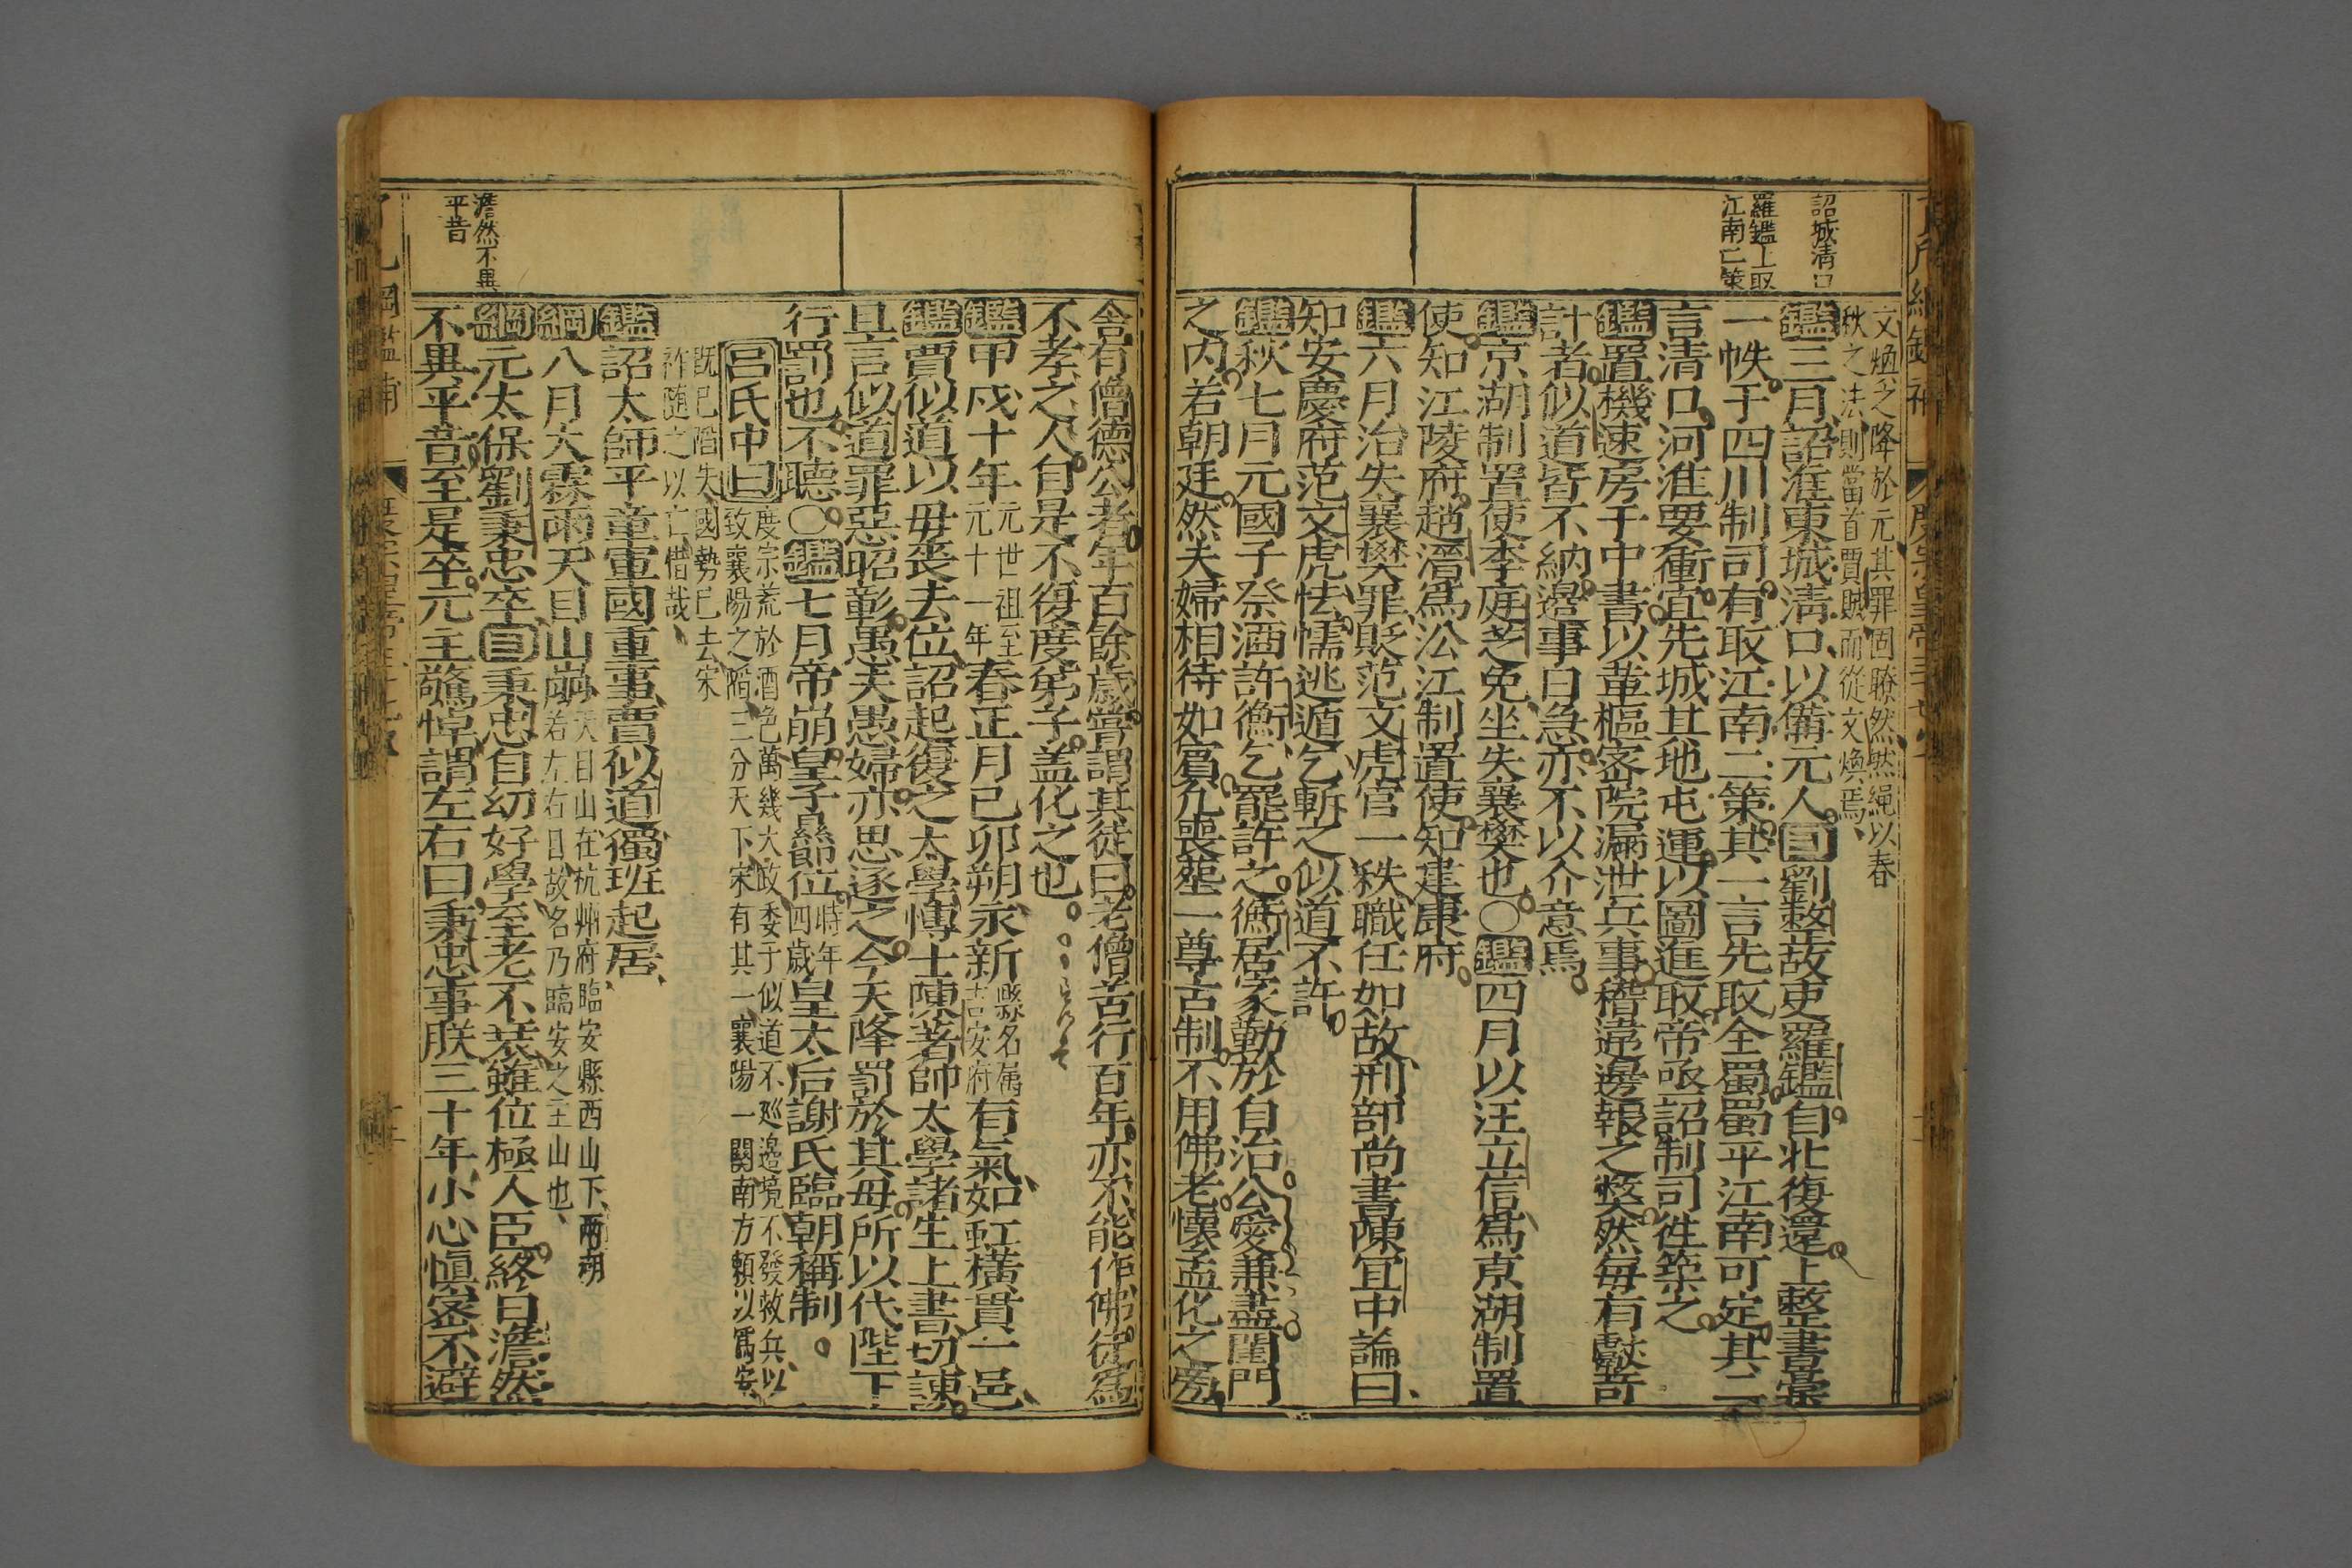 詔城清口
羅鑑上取
江南二策
文煥之降於元其罪固瞭然然繩以春
秋之法則當首賈賊而從文煥焉
鑑三月詔淮東城清口以備元人目劉整故吏羅鑑自北復還上整書藁
一帙于四川制司有取江南二策其一言先取全蜀蜀平江南可定其二
言清口河淮要衝宜先城其地屯運以圖進取帝亟詔制司徃築之
鑑置機速房于中書以革樞密院漏泄兵事稽違邊報之弊然每有獻計
計者似道皆不納邊事日急亦不以介意焉
鑑京湖制置使李庭芝免坐失襄樊也〇鑑四月以汪立信為京湖制置
使知江陵府趙溍為㳂江制置使知建康府
鑑六月治失襄樊罪貶范文虎官一秩職任如故刑部尚書陳宜中論曰
知安慶府范文虎怯懦逃遁乞斬之似道不許
鑑秋七月元國子祭酒許衡乞罷許之衡居家勤於自治公愛兼盡閨門
之内若朝廷然夫婦相待如賓凡喪塟一尊古制不用佛老懷孟化之旁
舍有僧德公者年百餘歲嘗謂其徒曰老僧苦行百年亦不能作佛徒為
不孝之人自是不復度弟子盖化之也
鑑甲戌十年元世祖至
元十一年春正月己卯朔永新縣名属
吉安府有氣如虹橫貫一邑
鑑賈似道以母丧去位詔起復之太學博士陳著帥太學諸生上書切諫
且言似道罪惡昭彰愚夫愚婦亦思逐之今天降罰於其母所以代陛下
行罰也不聽〇鑑七月帝崩皇子㬎即位時年
四歲皇太后謝氏臨朝稱制
呂氏中曰度宗荒於酒色萬幾大政委于似道不巡邊境不發救兵以
致襄陽之陷三分天下宋有其一襄陽一關南方頼以為安
既已陷失國勢已去宋
祚随之以亡惜哉
鑑詔太師平章軍國重事賈似道獨班起居
綱八月大霖雨天目山崩天目山在杭州府臨安縣西山下兩湖
若左右目故名乃臨安之主山也
綱元太保劉秉忠卒目秉忠自幼好學至老不衰雖位極人臣終日澹然
不異平昔至是卒元主驚悼謂左右曰秉忠事朕三十年小心慎密不避
澹然不異
平昔